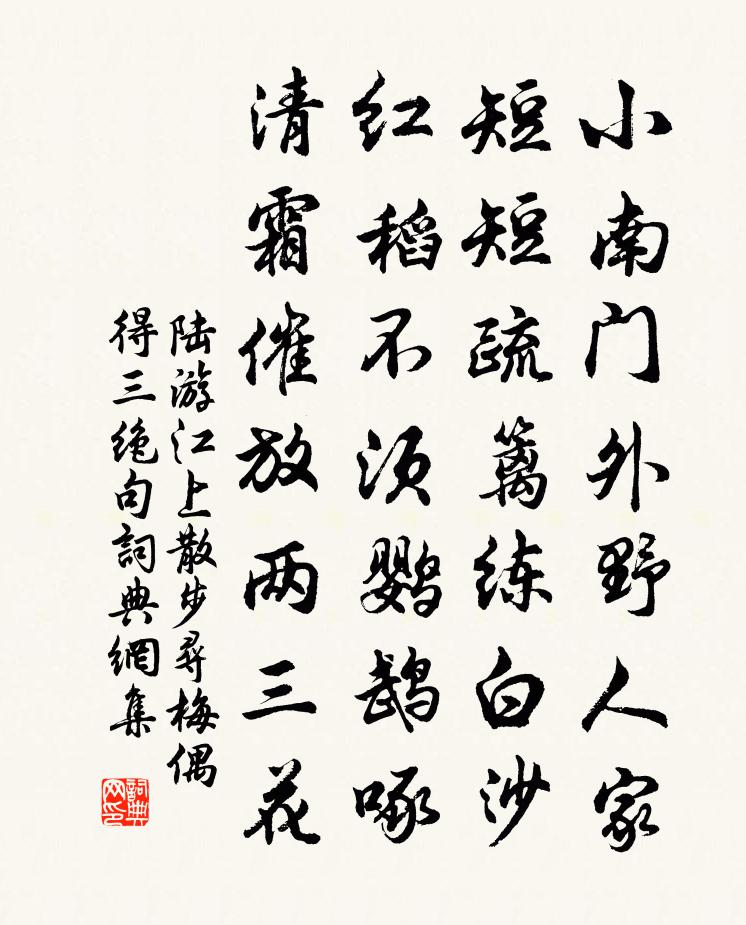 小南门外野人家
短短疏篱练白沙
红稻不须鹦鹉啄
清霜催放两三花
陆游江上散步尋梅偶
得三绝句詞典網集
詞典网印